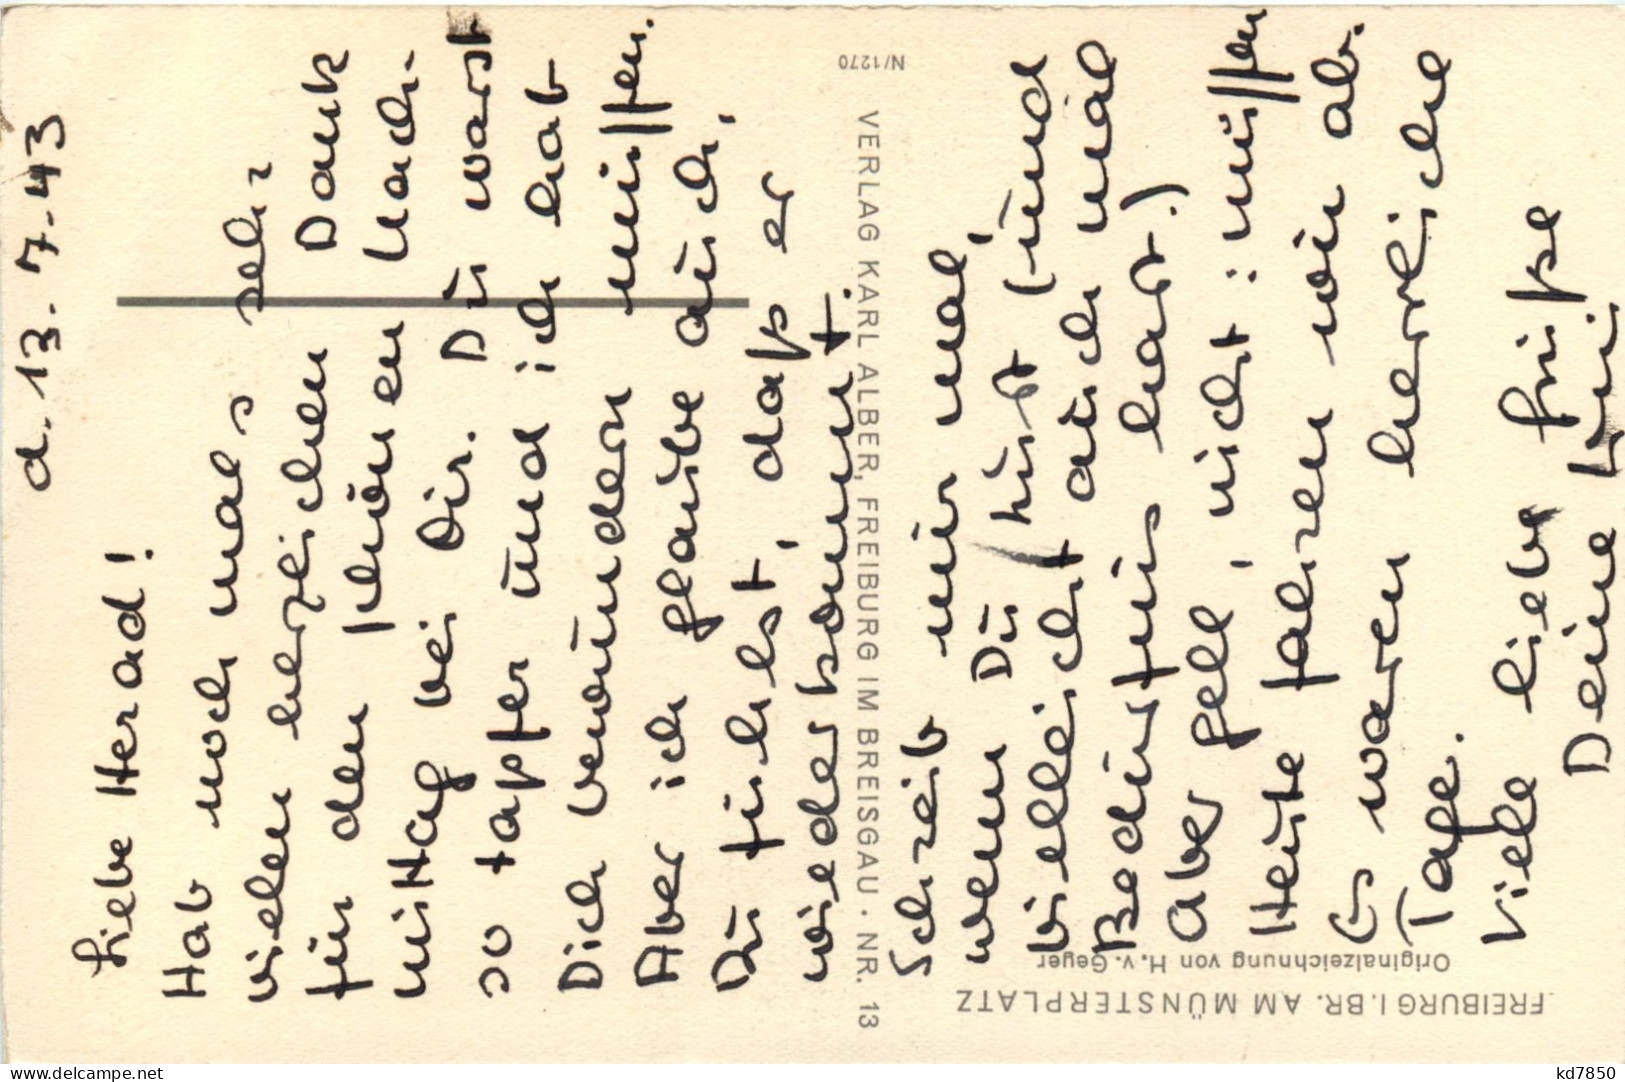 d. 13.7.43
Liebe Herad!
Hab noch mals sehr
vielen herzlichen Dank
für den schönen Nach-
mittag bei Dir. Du warst
so tapfer und ich hab
Dich bewundern müssen.
Aber ich glaube auch,
Du fühlst, daß er
wiederkommt.
Schreib mir mal,
wenn Du hüst (und
vielleicht auch mal
Bedürfnis hast.)
Aber gell, nicht: müssen
Heute fahren wir ab.
Es waren herrliche
Tage.
Viele liebe Grüße
Deine
VERLAG KARL ALBER, FREIBURG IM BREISGAU · NR. 13
N/1270
FREIBURG I. BR. AM MÜNSTERPLATZ
Originalzeichnung von H. v. Geyer
www.delcampe.net
kd7850